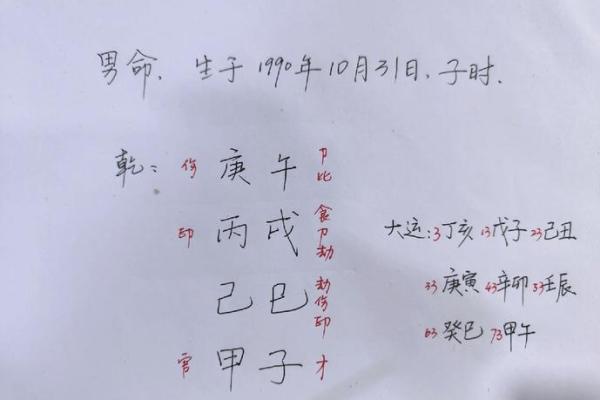 男命. 生于1990年10月31日、子时.
乾: 伤 庚午 卩比
印 丙戌 食卩劫
己巳 劫伤印
官 甲子 才
大运:3丁亥 13戊子 23己丑
33庚寅 43辛卯 53壬辰
63癸巳 73甲午